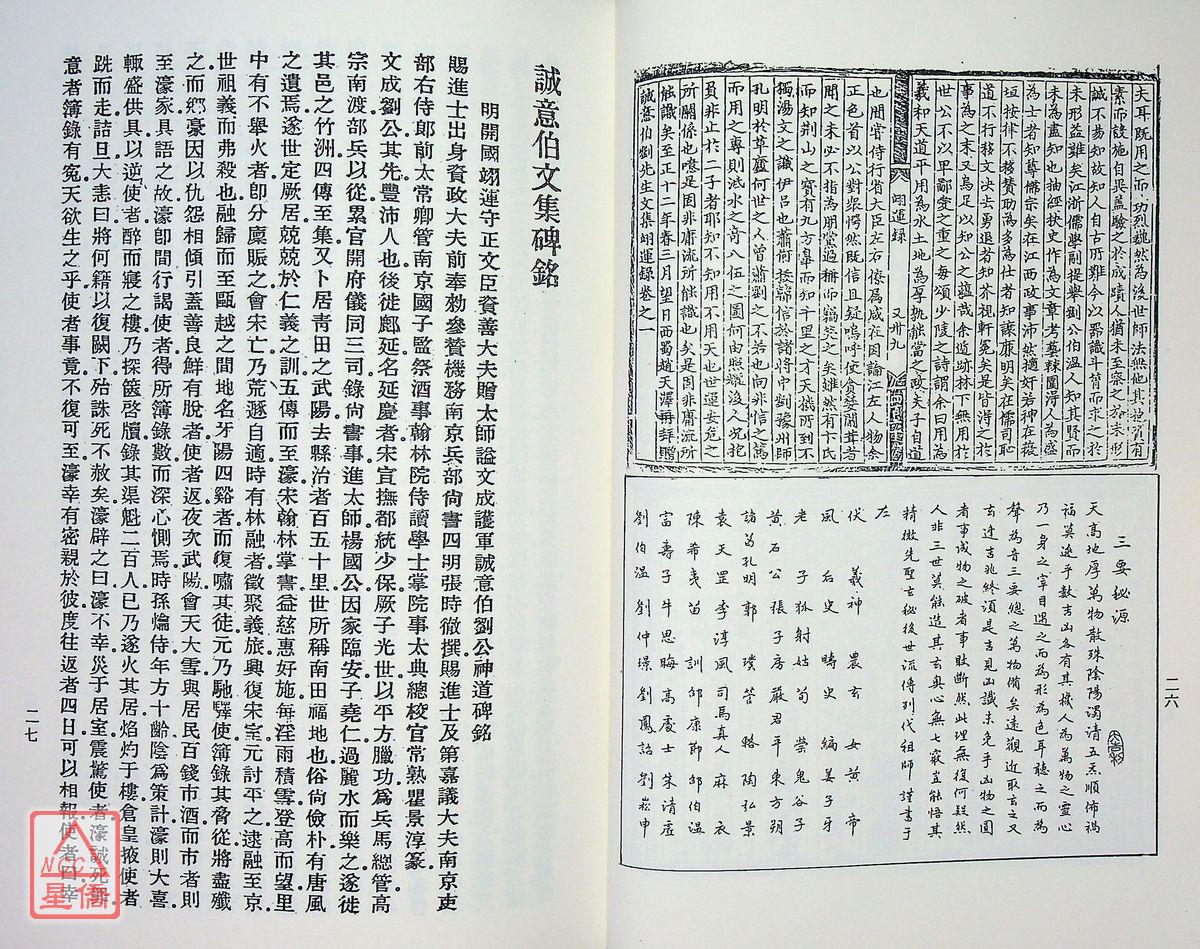 大耳既用之而功烈巍然為後世師法無他其世資有
素而設施自異蓋驗之於成蹟人猶未至察之於未形
誠不易知故知人自古所難今以器識斗筲而求之於
未形益難矣江浙儒學副提舉劉公伯溫人知其賢而
未為盡知也抽經狀史作為文章考藝棘圍淂人為盛
為士者知尊佛宗矣在江西政事沛然適好若神在薇
垣按律不移贊助為多為仕者知諒廉明矣在儒司恥
道不行移文决去勇退者知芥視軒冕矣是皆淂之於
事為之末又烏足以知公之蘊哉余遁跡林下無用於
世公不以畢鄙突之重之每頌少陵之詩謂余曰用為
羲和天道平用為水土地為厚執能當之政夫子自道
翊運錄
又卅九
也閒嘗侍行省大臣左右僚屬咸在因論江左人物余
正色首以公對眾愕然既信且疑嗚呼使食蔓聞葬者
聞之未必不指為朋黨過稱而竊笑之矣雖然有卞氏
而知荊山之寶有九方皋而知千里之才天機所到不
獨湯文之識伊呂也蕭何挼韓信於諸將中劉豫州師
孔明於草廬何世之人曾蕭劉之不若也向非信之篤
而用之專則泜水之奇八伍之圖何由照耀後人况抱
負非止於二子者耶知不知用不用天也世運安危之
所關係也噫是固非庸流所能識也矣是固非庸流所
能識矣至正十二年春三月望日西蜀趙天澤再拜贈
誠意伯劉先生文集翊運錄卷之一
三要秘源
天高地厚萬物散殊陰陽濁清五炁順佈禍
福莫逃乎數吉凶各有其機人為萬物之靈心
乃一身之宰目遇之而為形為色耳聽之而為
聲為音三要總之萬物備矣遠觀近取玄之又
玄逢吉兆終須是吉見凶識未免乎凶物之圓
者事成物之破者事敗斷然此理無復何疑然
人非三世莫能造其玄奧心無七竅豈能悟其
精微先聖玄秘後世流傳列代組師謹書于
左
伏羲神農玄女黃帝
風后史疇史編姜子牙
老子狐射姑荀榮鬼谷子
黃石公張子房嚴君平東方朔
諸葛孔明郭璞苦略陶弘景
袁天罡李淳風司馬真人麻衣
陳希夷苗訓邵康節邵伯溫
富壽子牛思晦高處士朱清虛
劉伯溫劉仲璟劉鳳詔劉崧申
二六
誠意伯文集碑銘
明開國翊運守正文臣資善大夫贈太師謚文成護軍誠意伯劉公神道碑銘
賜進士出身資政大夫前奉勑參贊機務南京兵部尙書四明張時徹撰賜進士及第嘉議大夫南京吏
部右侍郎前太常卿管南京國子監祭酒事翰林院侍讀學士掌院事太典總校官常熟瞿景淳篆
文成劉公其先豐沛人也後徙鄜延名延慶者宋宣撫都統少保厥子光世以平方臘功爲兵馬總管高
宗南渡部兵以從累官開府儀同三司錄尙書事進太師楊國公因家臨安子堯仁過麗水而樂之遂徙
其邑之竹洲四傳至集又卜居靑田之武陽去縣治者百五十里世所稱南田福地也俗尙儉朴有唐風
之遺焉遂世定厥居兢兢於仁義之訓五傳而至濠宋翰林掌書益慈惠好施每淫雨積雪登高而望里
中有不舉火者卽分廩賑之會宋亡乃荒遯自適時有林融者徵聚義旅興復宋室元討平之逮融至京
世祖義而弗殺也融歸而至甌越之間地名牙陽四谿者而復嘯其徒元乃馳驛使簿錄其脅從將盡殲
之而鄉豪因以仇怨相傾引蓋善良鮮有脫者使者返夜次武陽會天大雪與居民百錢市酒而市者則
至濠家具語之故濠卽間行謁使者得所簿錄數而深心惻焉時孫爚侍年方十齡陰爲策計濠則大喜
輒盛供具以逆使者醉而寢之樓乃探篋啓牘錄其渠魁二百人已乃遂火其居焰灼于樓倉皇掖使者
跣而走詰旦大恚曰將何籍以復闕下殆誅死不赦矣濠辟之曰濠不幸災于居室震驚使者濠誠死罪
意者簿錄有寃天欲生之乎使者事竟不復可至濠幸有密親於彼度往返者四日可以相報使者曰幸
二七
NCC
星僑